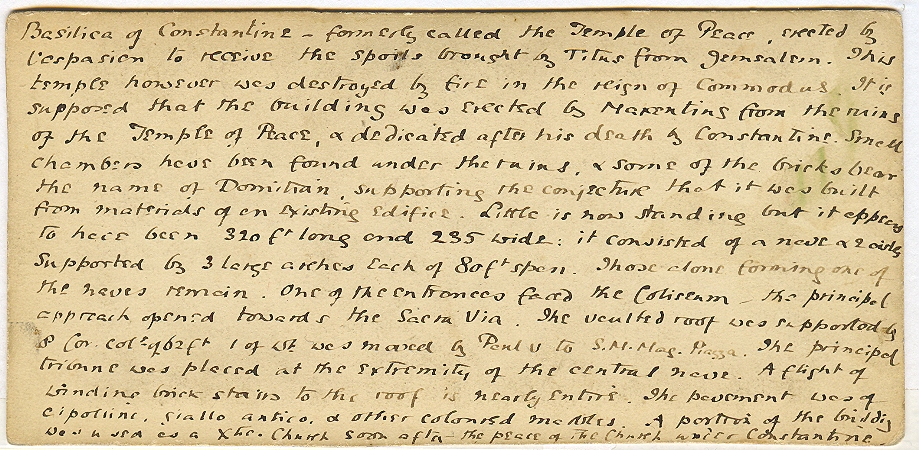 Basilica of Constantine – formerly called the Temple of Peace, erected by
Vespasian to receive the spoils brought by Titus from Jerusalem. This
temple however was destroyed by fire in the reign of Commodus. It is
supposed that the building was erected by Maxentius from the ruins
of the Temple of Peace, & dedicated after his death by Constantine. Small
chambers have been found under the ruins, & some of the bricks bear
the name of Domitian, supporting the conjecture that it was built
from materials of an existing edifice. Little is now standing but it appears
to have been 320 ft long and 235 wide: it consisted of a nave & 2 aisles
supported by 3 large arches each of 80 ft span. Those alone forming one of
the naves remain. One of the entrances faced the Coliseum – the principal
approach opened towards the Sacra Via. The vaulted roof was supported by
8 Cor. cols of 62 ft 1 of wh was moved by Paul V to S.M. Mag. Piazza. The principal
tribune was placed at the extremity of the central nave. A flight of
winding brick stairs to the roof is nearly entire. The pavement was of
cipollino, giallo antico, & other coloured marbles. A portion of the building
was used as a Xtn. Church soon after the peace of the Church under Constantine